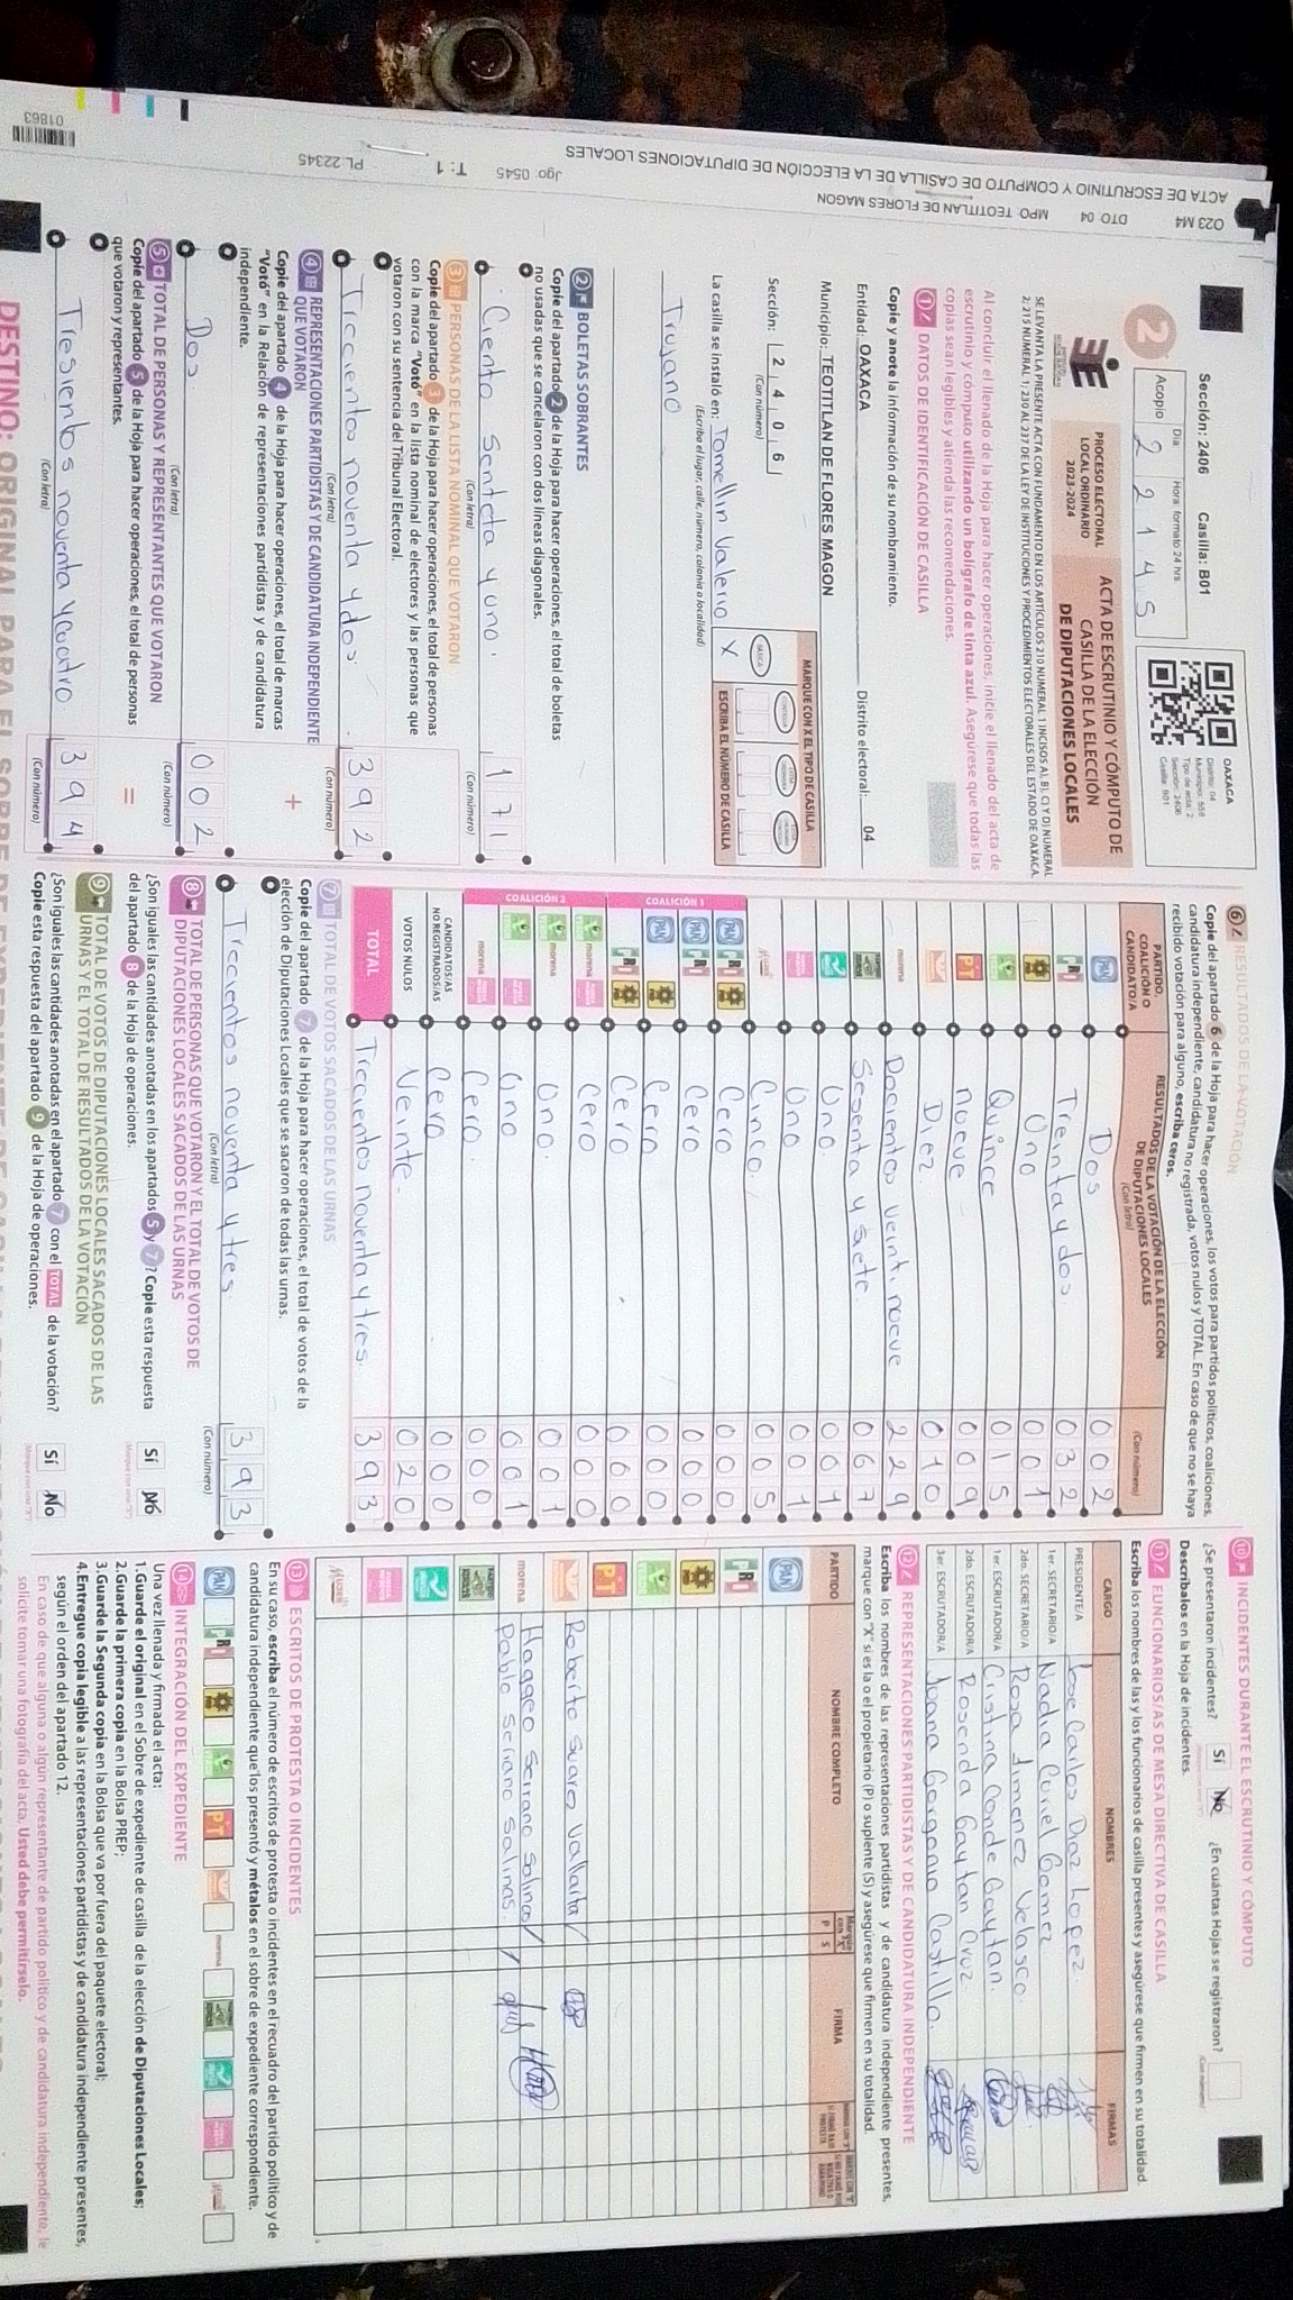 ACTA DE ESCRUTINIO Y CÓMPUTO DE CASILLA DE LA ELECCIÓN DE DIPUTACIONES LOCALES
O23 M4 DTO 04 MPO: TEOTITLAN DE FLORES MAGON
Jgo: 0545 T: 1 PL 22345
01863
Sección: 2406 Casilla: B01
Día Hora: formato 24 hrs.
Acopio 2 2 1 4 5
OAXACA
Distrito: 04
Municipio: 558
Tipo de acta: 2
Sección: 2406
Casilla: B01
2
PROCESO ELECTORAL
LOCAL ORDINARIO
2023-2024
ACTA DE ESCRUTINIO Y CÓMPUTO DE
CASILLA DE LA ELECCIÓN
DE DIPUTACIONES LOCALES
SE LEVANTA LA PRESENTE ACTA CON FUNDAMENTO EN LOS ARTÍCULOS 210 NUMERAL 1 INCISOS A), B), C) Y D) NUMERAL
2; 215 NUMERAL 1; 230 AL 237 DE LA LEY DE INSTITUCIONES Y PROCEDIMIENTOS ELECTORALES DEL ESTADO DE OAXACA.
Al concluir el llenado de la Hoja para hacer operaciones, inicie el llenado del acta de
escrutinio y cómputo utilizando un bolígrafo de tinta azul. Asegúrese que todas las
copias sean legibles y atienda las recomendaciones.
1 DATOS DE IDENTIFICACIÓN DE CASILLA
Copie y anote la información de su nombramiento.
Entidad: OAXACA Distrito electoral: 04
Municipio: TEOTITLAN DE FLORES MAGON
Sección: 2 4 0 6
(Con número)
MARQUE CON X EL TIPO DE CASILLA
BÁSICA
X
ESCRIBA EL NÚMERO DE CASILLA
La casilla se instaló en: Tomellin Valerio
(Escriba el lugar, calle, número, colonia o localidad)
Trujano
2 BOLETAS SOBRANTES
Copie del apartado 2 de la Hoja para hacer operaciones, el total de boletas
no usadas que se cancelaron con dos líneas diagonales.
Ciento Senteta y uno. 1 7 1
(Con letra) (Con número)
3 PERSONAS DE LA LISTA NOMINAL QUE VOTARON
Copie del apartado 3 de la Hoja para hacer operaciones, el total de personas
con la marca "Votó" en la lista nominal de electores y las personas que
votaron con su sentencia del Tribunal Electoral.
Trecientos noventa y dos. 3 9 2
(Con letra) (Con número)
4 REPRESENTACIONES PARTIDISTAS Y DE CANDIDATURA INDEPENDIENTE
QUE VOTARON
Copie del apartado 4 de la Hoja para hacer operaciones, el total de marcas
"Votó" en la Relación de representaciones partidistas y de candidatura
independiente.
+
Dos 0 0 2
(Con letra) (Con número)
5 TOTAL DE PERSONAS Y REPRESENTANTES QUE VOTARON
Copie del apartado 5 de la Hoja para hacer operaciones, el total de personas
que votaron y representantes.
=
Tresientos noventa y cuatro 3 9 4
(Con letra) (Con número)
6 RESULTADOS DE LA VOTACIÓN
Copie del apartado 6 de la Hoja para hacer operaciones, los votos para partidos políticos, coaliciones,
candidatura independiente, candidatura no registrada, votos nulos y TOTAL. En caso de que no se haya
recibido votación para alguno, escriba ceros.
PARTIDO, COALICIÓN O CANDIDATO/A
RESULTADOS DE LA VOTACIÓN DE LA ELECCIÓN
DE DIPUTACIONES LOCALES
(Con letra) (Con número)
PAN Dos 0 0 2
PRI Treinta y dos 0 3 2
Uno 0 0 1
Quince 0 1 5
PT nueve 0 0 9
Diez 0 1 0
morena Docientos veinti nueve 2 2 9
Sesenta y siete. 0 6 7
Uno. 0 0 1
Uno 0 0 1
Cinco. 0 0 5
COALICIÓN 1
PAN PRI Cero 0 0 0
PAN PRI Cero 0 0 0
PAN Cero 0 0 0
PRI Cero 0 0 0
COALICIÓN 2
morena Cero 0 0 0
morena Uno. 0 0 1
Uno 0 0 1
morena Cero 0 0 0
CANDIDATOS/AS
NO REGISTRADOS/AS Cero 0 0 0
VOTOS NULOS Veinte. 0 2 0
TOTAL Trecientos noventa y tres. 3 9 3
7 TOTAL DE VOTOS SACADOS DE LAS URNAS
Copie del apartado 7 de la Hoja para hacer operaciones, el total de votos de la
elección de Diputaciones Locales que se sacaron de todas las urnas.
Trecientos noventa y tres. 3 9 3
(Con letra) (Con número)
8 TOTAL DE PERSONAS QUE VOTARON Y EL TOTAL DE VOTOS DE
DIPUTACIONES LOCALES SACADOS DE LAS URNAS
¿Son iguales las cantidades anotadas en los apartados 5 y 7? Copie esta respuesta
del apartado 8 de la Hoja de operaciones.
Sí No
9 TOTAL DE VOTOS DE DIPUTACIONES LOCALES SACADOS DE LAS
URNAS Y EL TOTAL DE RESULTADOS DE LA VOTACIÓN
¿Son iguales las cantidades anotadas en el apartado 7 con el TOTAL de la votación?
Copie esta respuesta del apartado 9 de la Hoja de operaciones.
Sí No
10 INCIDENTES DURANTE EL ESCRUTINIO Y CÓMPUTO
¿Se presentaron incidentes? Sí No ¿En cuántas Hojas se registraron?
(Con número)
Descríbalos en la Hoja de incidentes.
11 FUNCIONARIOS/AS DE MESA DIRECTIVA DE CASILLA
Escriba los nombres de las y los funcionarios de casilla presentes y asegúrese que firmen en su totalidad.
CARGO NOMBRES FIRMAS
PRESIDENTE/A Jose Carlos Diaz Lopez.
1er. SECRETARIO/A Nadia Curiel Gamez
2do. SECRETARIO/A Rosa Jimenez Velasco.
1er. ESCRUTADOR/A Cristina Conde Gaytan.
2do. ESCRUTADOR/A Rosenda Gaytan Cruz.
3er. ESCRUTADOR/A Joana Gorgonio Castillo.
12 REPRESENTACIONES PARTIDISTAS Y DE CANDIDATURA INDEPENDIENTE
Escriba los nombres de las representaciones partidistas y de candidatura independiente presentes,
marque con "X" si es la o el propietario (P) o suplente (S) y asegúrese que firmen en su totalidad.
PARTIDO NOMBRE COMPLETO P S FIRMA
PAN
PRI
PT
Roberto Suaro Vallarta
morena Haggeo Serrano Salinas
Pablo Serrano Salinas.
13 ESCRITOS DE PROTESTA O INCIDENTES
En su caso, escriba el número de escritos de protesta o incidentes en el recuadro del partido político y de
candidatura independiente que los presentó y métalos en el sobre de expediente correspondiente.
PAN PRI PT morena
14 INTEGRACIÓN DEL EXPEDIENTE
Una vez llenada y firmada el acta:
1. Guarde el original en el Sobre de expediente de casilla de la elección de Diputaciones Locales;
2. Guarde la primera copia en la Bolsa PREP;
3. Guarde la Segunda copia en la Bolsa que va por fuera del paquete electoral;
4. Entregue copia legible a las representaciones partidistas y de candidatura independiente presentes,
según el orden del apartado 12.
En caso de que alguna o algún representante de partido político y de candidatura independiente, le
solicite tomar una fotografía del acta, Usted debe permitírselo.